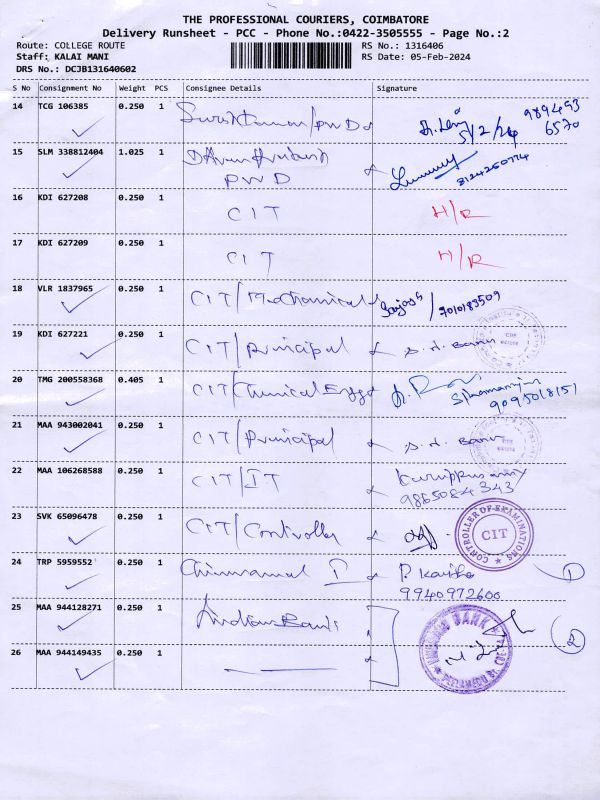 THE PROFESSIONAL COURIERS, COIMBATORE
Delivery Runsheet - PCC - Phone No.:0422-3505555 - Page No.:2
Route: COLLEGE ROUTE RS No.: 1316406
Staff: KALAI MANI RS Date: 05-Feb-2024
DRS No.: DCJB131640602
S No Consignment No Weight PCS Consignee Details Signature
14 TCG 106385 0.250 1 5/2/24 989493 6570
15 SLM 338812404 1.025 1
PWD 8124260774
16 KDI 627208 0.250 1 CIT H/R
17 KDI 627209 0.250 1 CIT H/R
18 VLR 1837965 0.250 1 CIT/Mechanical 7010183509
19 KDI 627221 0.250 1 CIT/Principal
20 TMG 200558368 0.405 1 CIT/Chemical
9095018151
21 MAA 943002041 0.250 1 CIT/Principal
22 MAA 106268588 0.250 1 CIT/IT Karuppusamy
9865084343
23 SVK 65096478 0.250 1 CIT/Controller CONTROLLER OF EXAMINATIONS CIT
24 TRP 5959552 0.250 1 1
9940972600
25 MAA 944128271 0.250 1 Indian Bank 2
26 MAA 944149435 0.250 1